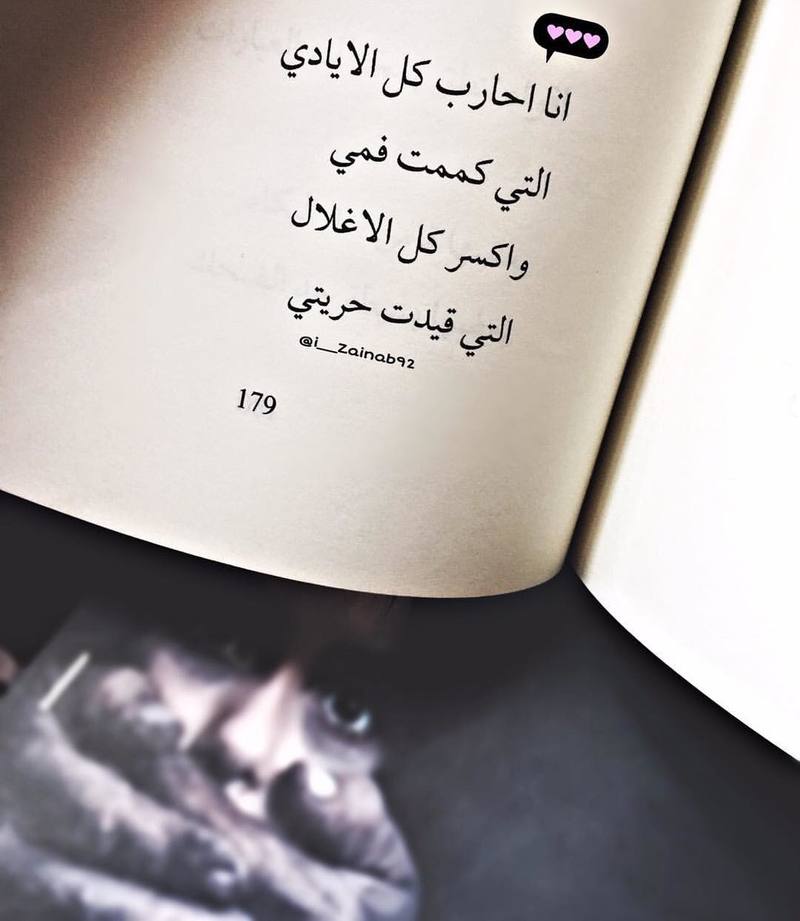 انا احارب كل الايادي
التي كممت فمي
واكسر كل الاغلال
التي قيدت حريتي
@i__Zainab92
179